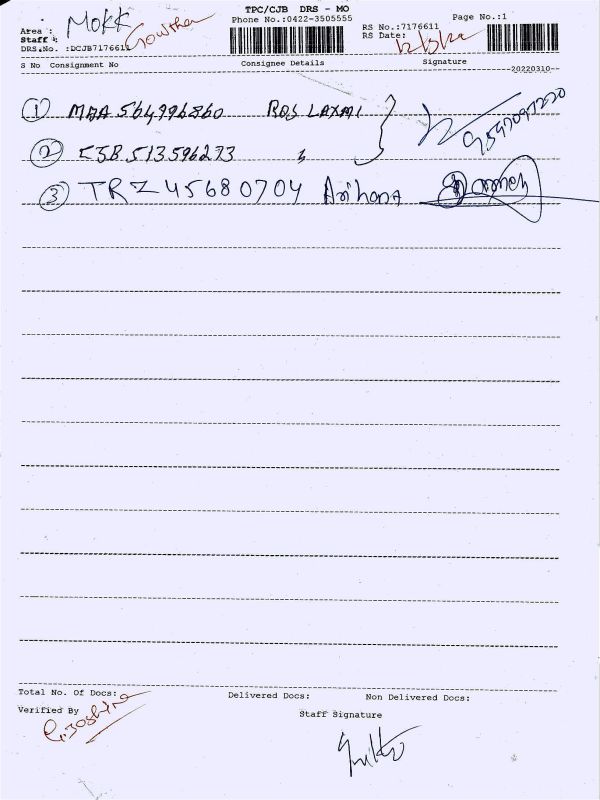 TPC/CJB DRS - MO
Area : MOKK
Phone No.:0422-3505555
RS No.:7176611
Page No.:1
Staff : Gowtham
RS Date:
DRS.No. :DCJB7176611
S No Consignment No Consignee Details Signature
20220310
1 MAA 564996860 ROS LAXMI
9597097220
2 CJB 513596273 "
3 TRZ 45680704 Arihana
Total No. Of Docs: Delivered Docs: Non Delivered Docs:
Verified By
Staff Signature